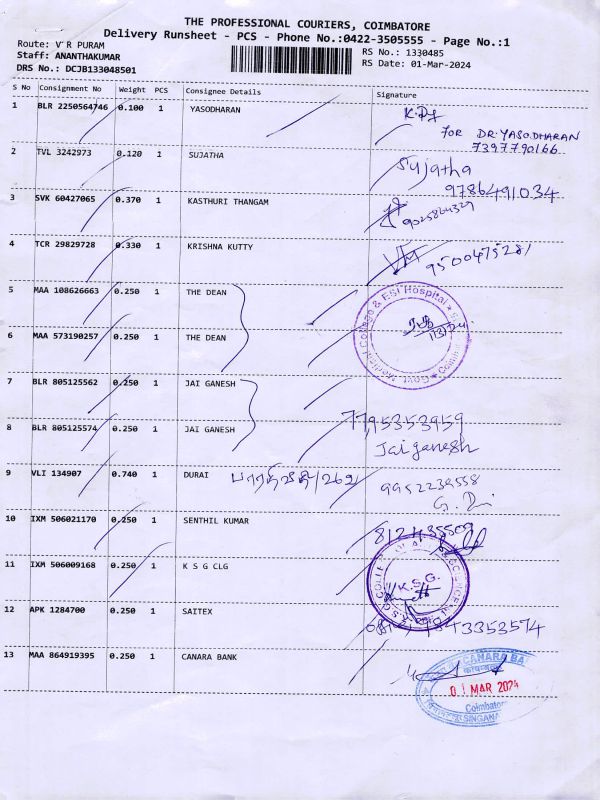 THE PROFESSIONAL COURIERS, COIMBATORE
Delivery Runsheet - PCS - Phone No.:0422-3505555 - Page No.:1
Route: V R PURAM
RS No.: 1330485
Staff: ANANTHAKUMAR
RS Date: 01-Mar-2024
DRS No.: DCJB133048501
S No Consignment No Weight PCS Consignee Details Signature
1 BLR 2250564746 0.100 1 YASODHARAN
FOR DR.YASODHARAN
7397790166
2 TVL 3242973 0.120 1 SUJATHA Sujatha
9786491034
3 SVK 60427065 0.370 1 KASTHURI THANGAM 9025864329
4 TCR 29829728 0.330 1 KRISHNA KUTTY 9500475281
5 MAA 108626663 0.250 1 THE DEAN
Govt. Medical College & ESI Hospital
6 MAA 573190257 0.250 1 THE DEAN
7 BLR 805125562 0.250 1 JAI GANESH
7795353959
8 BLR 805125574 0.250 1 JAI GANESH Jaiganesh
9 VLI 134907 0.740 1 DURAI 9952239558
10 IXM 506021170 0.250 1 SENTHIL KUMAR
11 IXM 506009168 0.250 1 K S G CLG K.S.G.
12 APK 1284700 0.250 1 SAITEX
13 MAA 864919395 0.250 1 CANARA BANK
CANARA BA
01 MAR 2024
Coimbator
SINGANA